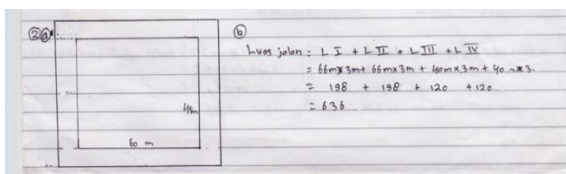 2 a
40m
60 m
b
Luas jalan = L I + L II + L III + L IV
= 66m x 3m + 66m x 3m + 40m x 3m + 40 m x 3.
= 198 + 198 + 120 + 120
= 636